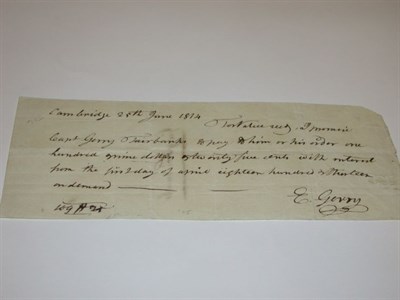 Cambridge 28th June 1814
For value recd. I promise
Capt Gerry Fairbanks to pay to him or his order one
hundred & nine dollars & twenty five cents with interest
from the first day of april eighteen hundred & thirteen
on demand
E. Gerry
109